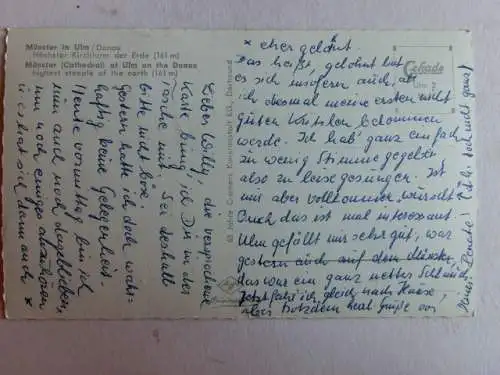 Münster in Ulm/Donau
Höchster Kirchturm der Erde (161 m)
Münster (Cathedral) at Ulm on the Danau
highest steeple of the earth (161 m)
Lieber Willy, die versprochene
Karte bring ich Dir in der
Tasche mit. Sei deshalb
bitte nicht böse.
Gestern hatte ich doch wahr-
haftig keine Gelegenheit.
Heute vormittag bin ich
nun auch noch dageblieben,
um noch einiges anzuhören
u. es hat sich dann auch x
x eher gelohnt.
Das heißt, gelohnt hat
es sich insofern auch, als
ich diesmal meine ersten nicht
guten Kritiken bekommen
werde. Ich hab' ganz einfach
zu wenig Stimme gegeben
also zu leise gesungen. Ist
mir aber vollkommen wurscht
Auch das ist mal interessant.
Ulm gefällt mir sehr gut, war
gestern auch auf dem Münster,
das war ein ganz nettes
Jetzt fahr ich gleich nach Hause,
aber trotzdem herzl. Grüße von
(d.h. doch nicht ganz!)
Cekade
Ulm